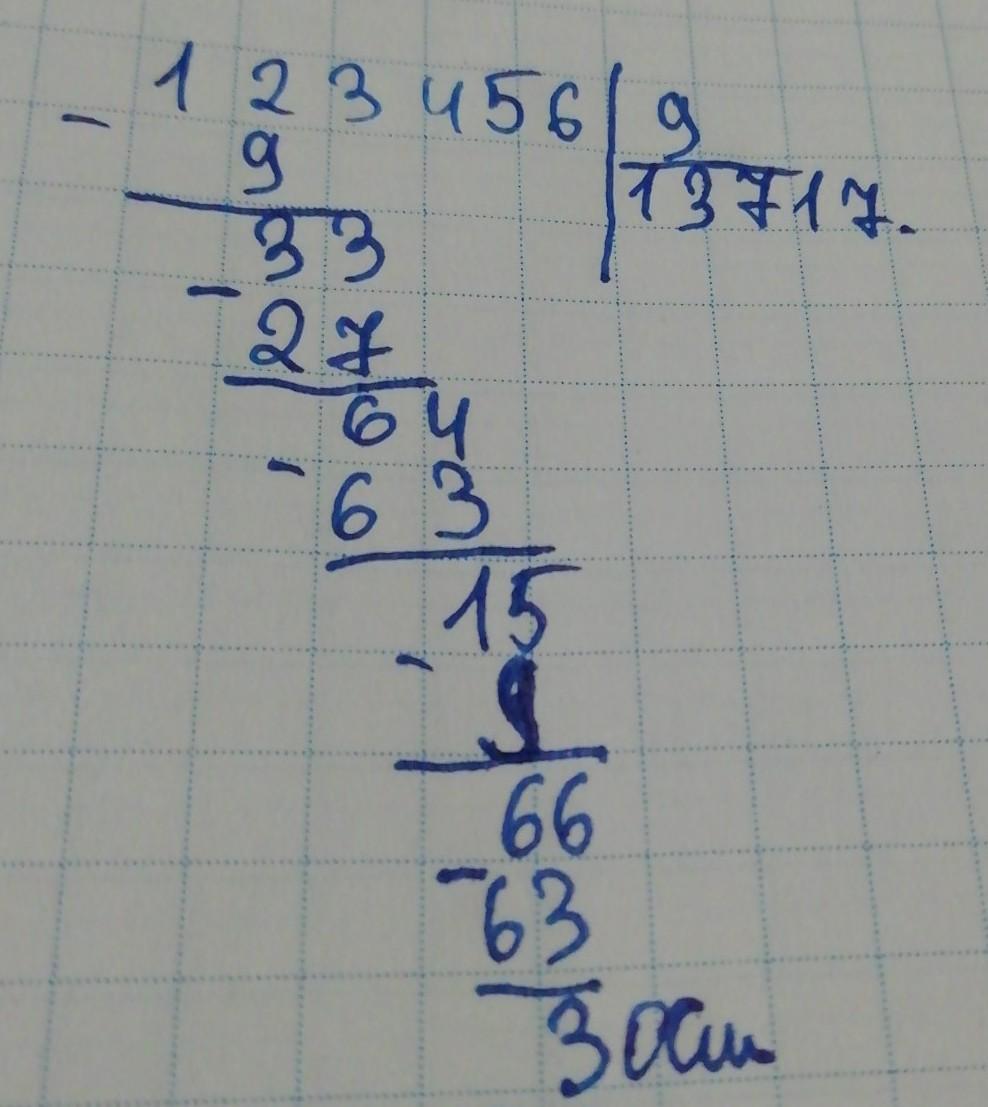 123456 | 9
- 9 | 13717.
33
- 27
64
- 63
15
- 9
66
- 63
3 ост